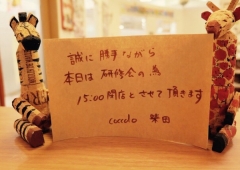 誠に勝手ながら
本日は研修会の為
15:00閉店とさせて頂きます
cuccolo 柴田